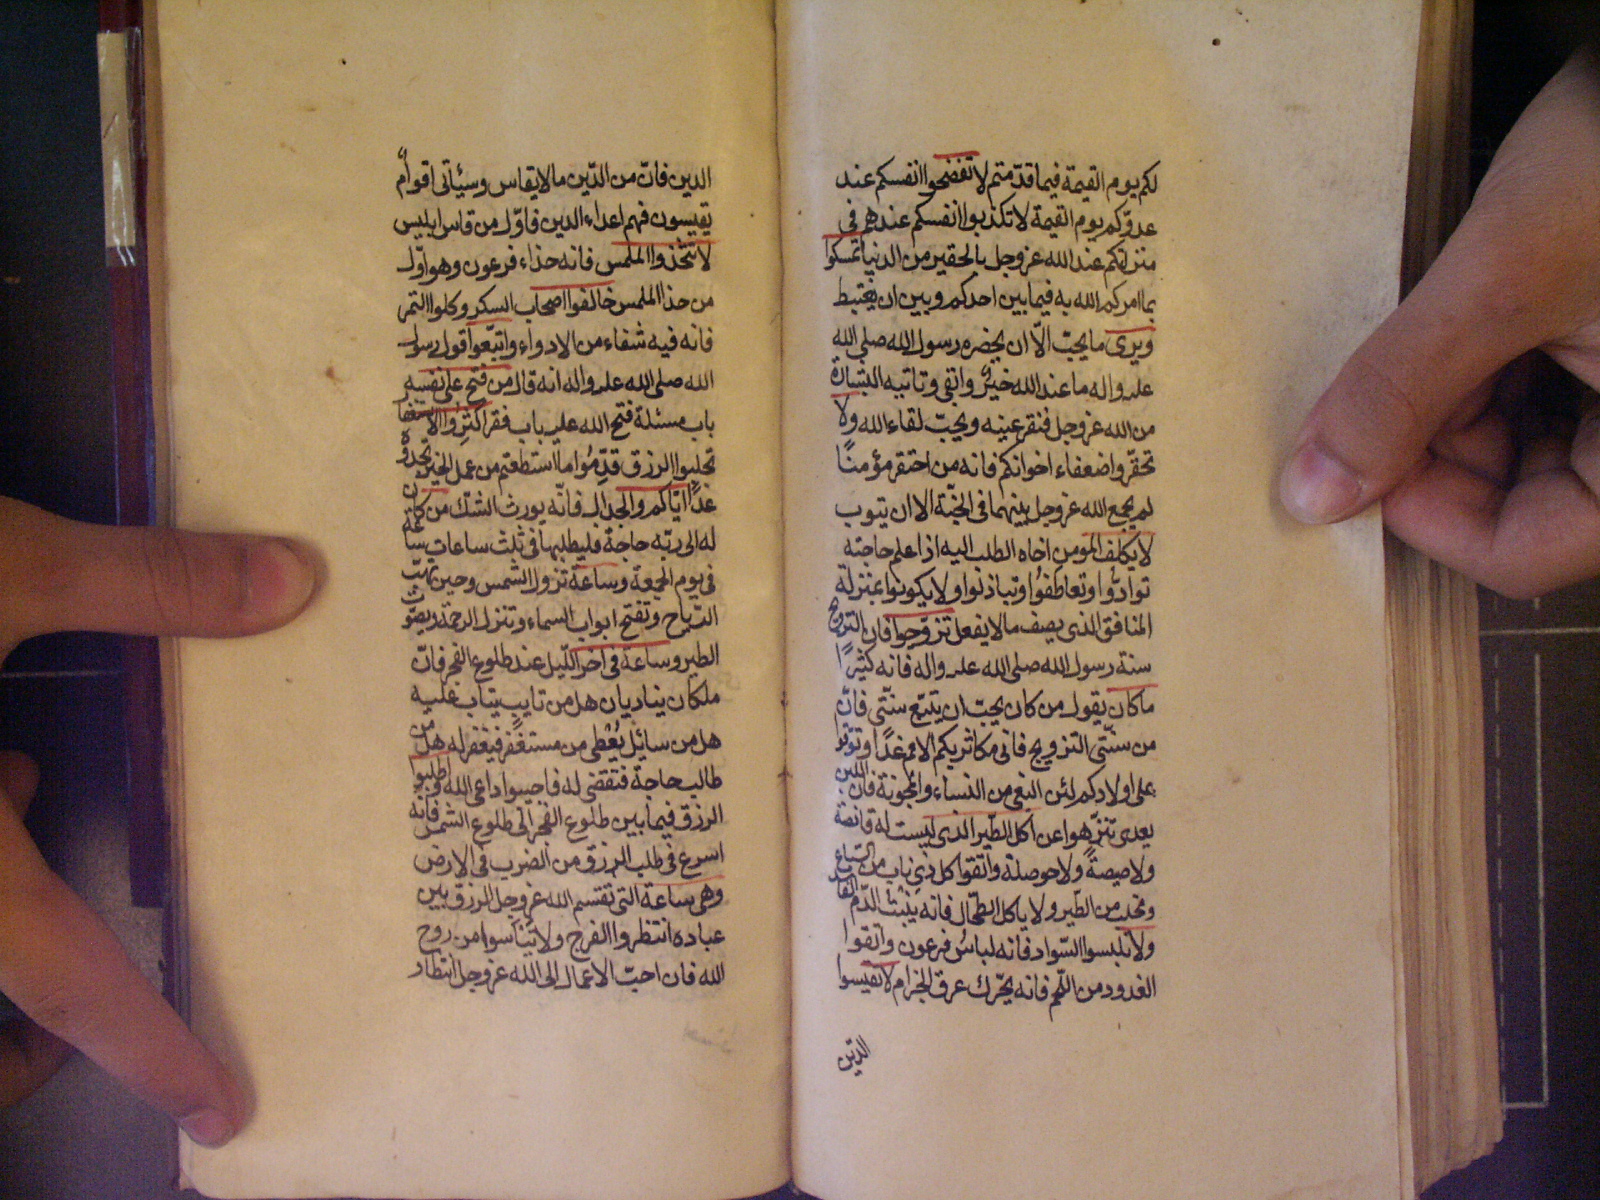 لكم يوم القيمة فيما قدّمتم لا تفضحوا انفسكم عند
عدوّكم يوم القيمة لا تكذبوا انفسكم عندهم فى
منزلتكم عند الله عز وجل بالحقير من الدنيا تمسكوا
بما امركم الله به فيما بين احدكم وبين ان يغتبط
ويرى ما يحبّ الّا ان يحضره رسول الله صلى الله
عليه واله ما عند الله خيرٌ وابقى وتاتيه البشارة
من الله عز وجل فتقر عينه ويحبّ لقاء الله ولا
تحقّروا ضعفاء اخوانكم فانه من احتقر مؤمنًا
لم يجمع الله عز وجل بينهما فى الجنّة الا ان يتوب
لا يكلف المومن اخاه الطلب اليه اذا علم حاجته
توادّوا وتعاطفُوا وتباذلوا ولا يكونوا بمنزلة
المنافق الذى يصف ما لا يفعل تزوّجوا فان التزويج
سنة رسول الله صلى الله عليه واله فانه كثيرًا
ما كان يقول من كان يحبّ ان يتبّع سنّتى فانّ
من سنّتى التزويج فانى مكاثر بكم الامم غدًا وتوقّوا
على اولادكم لبن البغى من النساء والمجنونة فان اللبن
يعدى تنزّهوا عن اكل الطّير الذى ليست له قانصة
ولا صيصةً ولا حوصلة واتقوا كل ذى ناب من السّباع
ومخلب من الطّير ولا ياكل الطّحال فانه ينبث الدّم الفاسد
ولا تلبسوا السّواد فانه لباسُ فرعون واتقوا
الغدود من اللّحم فانه يحّرك عرق الجزام لا تقيسوا
الدّين
الدين فانّ من الدّين ما لا يقاس وسيأتى اقوامٌ
يقيسون فهم اعداء الدين فاوّل من قاس ابليس
لا تتّخذوا الملمس فانه حذاء فرعون وهو اوّل
من حذا الملمس خالفوا اصحاب السكر وكلوا التمر
فانه فيه شفاء من الادواء واتبّعوا قول رسول
الله صلى الله عليه واله انه قال من فتح على نفسه
باب مسئلة فتح الله عليه باب فقر اكثرُوا الاستغفار
تجلبوا الرزق قدّمُوا ما استطعتم من عمل الخير تجدوه
غدًا ايّاكم والجدال فانّه يورث الشكّ من كان
له الى ربّه حاجة فليطلبها فى ثلث ساعات ساعة
فى يوم الجمعة وساعة تزول الشمس وحين تهبّ
الرّياح وتفتح ابواب السماء وتنزل الرحمة ويصوّت
الطير وساعة فى اخر اللّيل عند طلوع الفجر فانّ
ملكان يناديان هل من تايب يتاب عليه
هل من سائل يُعْطى من مستغفر فيغفر له هل من
طالب حاجة فتقضى له فاجيبوا داعى الله واطلبوا
الرزق فيما بين طلوع الفجر الى طلوع الشمس فانّه
اسرع فى طلب الرزق من الضرب فى الارض
وهى ساعة التى تقسم الله عز وجل الرزق بين
عباده انتظروا الفرج ولا تيئاسوا من روح
الله فان احبّ الاعمال الى الله عز وجل انتظار